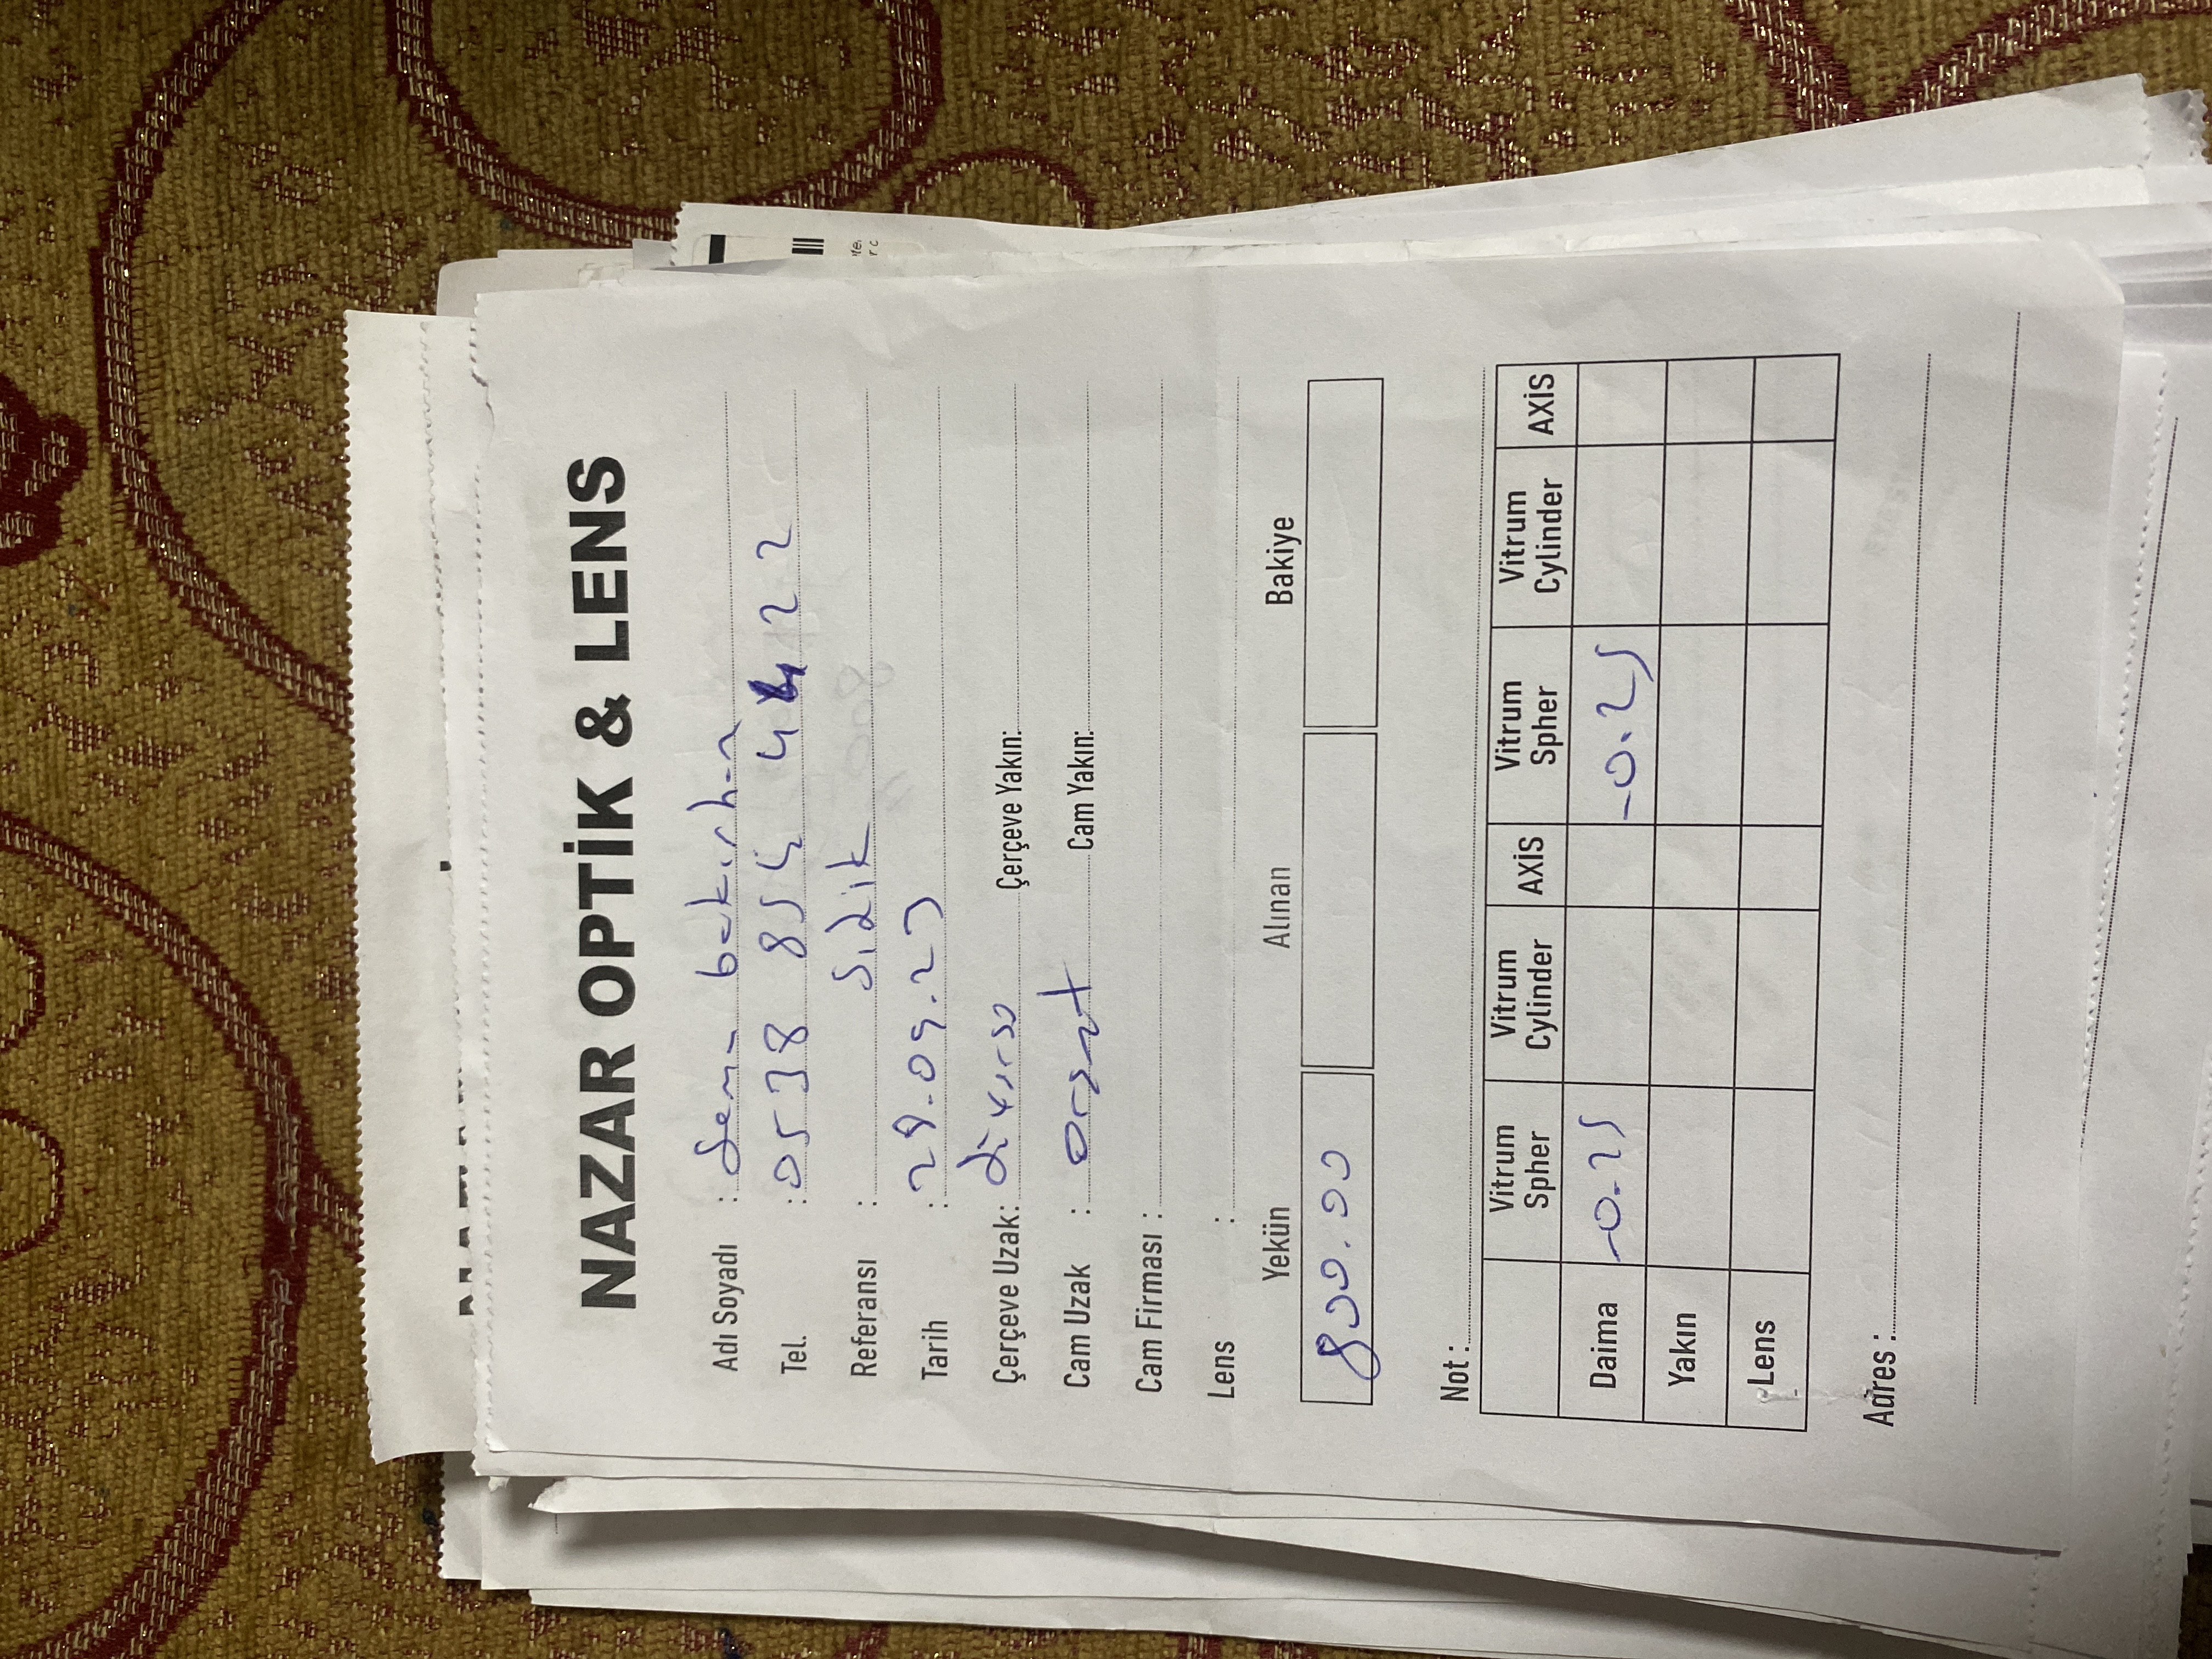 NAZAR OPTİK & LENS
Adı Soyadı : Sema bakırhan
Tel. : 0538 854 44 22
Referansı : Sıdik
Tarih : 28.09.23
Çerçeve Uzak: diverso Çerçeve Yakın:
Cam Uzak : organt Cam Yakın:
Cam Firması :
Lens :
Yekün Alınan Bakiye
800.00
Not :
Vitrum Spher Vitrum Cylinder AXİS Vitrum Spher Vitrum Cylinder AXİS
Daima -0.25 -0.25
Yakın
Lens
Adres :